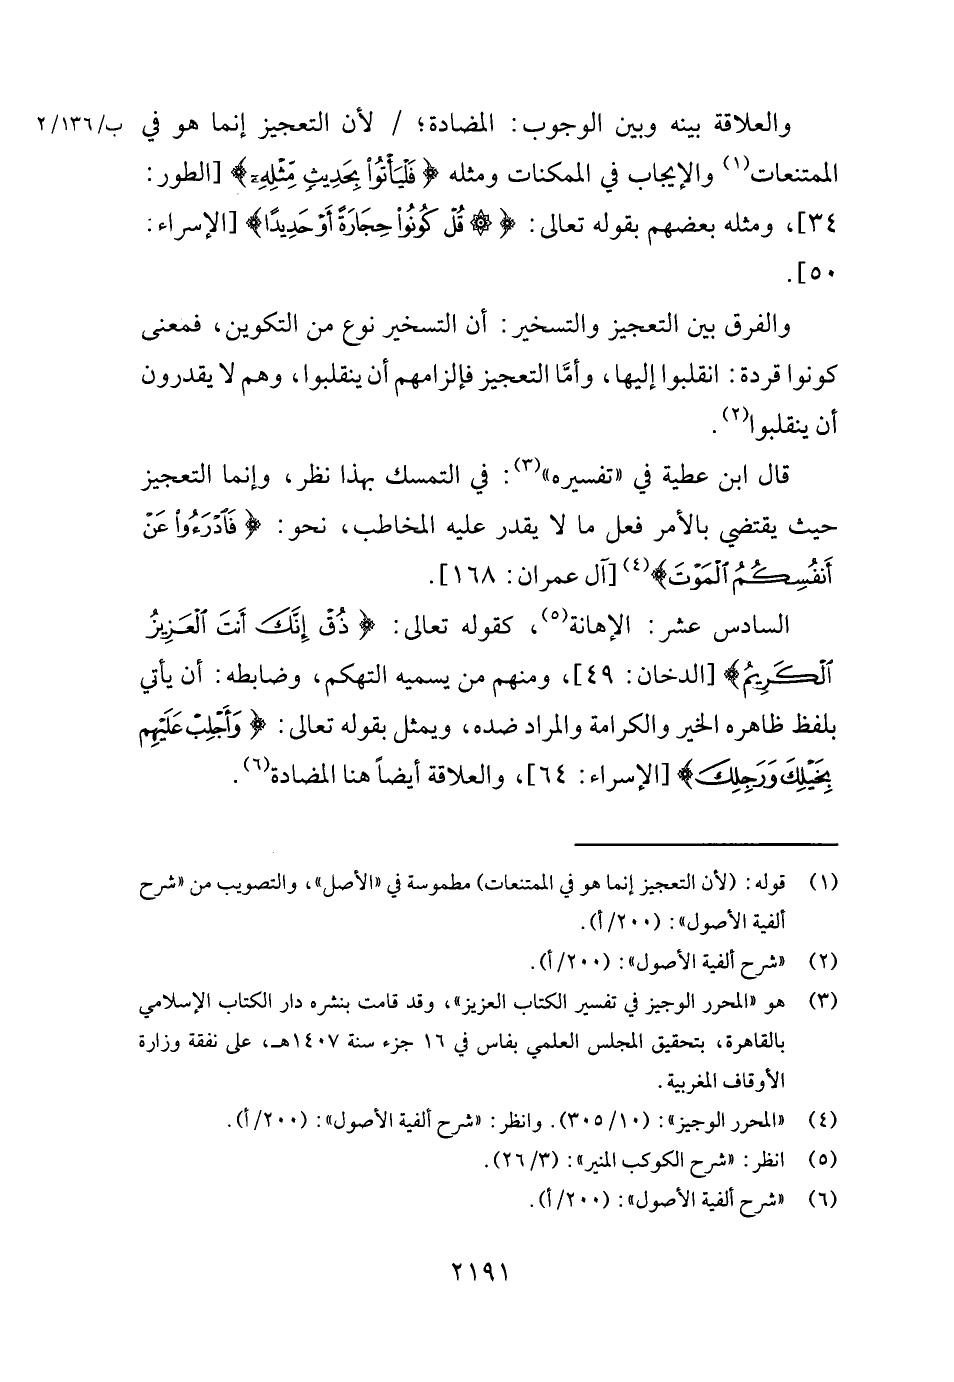 والعلاقة بينه وبين الوجوب: المضادة؛ / لأن التعجيز إنما هو في ب/١٣٦/٢
الممتنعات(١) والإيجاب في الممكنات ومثله ﴿فَلْيَأْتُوا۟ بِحَدِيثٍ مِّثْلِهِۦٓ﴾ [الطور:
٣٤]، ومثله بعضهم بقوله تعالى: ﴿۞ قُلْ كُونُوا۟ حِجَارَةً أَوْ حَدِيدًا﴾ [الإسراء:
٥٠].
والفرق بين التعجيز والتسخير: أن التسخير نوع من التكوين، فمعنى
كونوا قردة: انقلبوا إليها، وأمَّا التعجيز فإلزامهم أن ينقلبوا، وهم لا يقدرون
أن ينقلبوا(٢).
قال ابن عطية في «تفسيره»(٣): في التمسك بهذا نظر، وإنما التعجيز
حيث يقتضي بالأمر فعل ما لا يقدر عليه المخاطب، نحو: ﴿فَٱدْرَءُوا۟ عَنْ
أَنفُسِكُمُ ٱلْمَوْتَ﴾(٤) [آل عمران: ١٦٨].
السادس عشر: الإهانة(٥)، كقوله تعالى: ﴿ذُقْ إِنَّكَ أَنتَ ٱلْعَزِيزُ
ٱلْكَرِيمُ﴾ [الدخان: ٤٩]، ومنهم من يسميه التهكم، وضابطه: أن يأتي
بلفظ ظاهره الخير والكرامة والمراد ضده، ويمثل بقوله تعالى: ﴿وَأَجْلِبْ عَلَيْهِم
بِخَيْلِكَ وَرَجِلِكَ﴾ [الإسراء: ٦٤]، والعلاقة أيضاً هنا المضادة(٦).
(١) قوله: (لأن التعجيز إنما هو في الممتنعات) مطموسة في «الأصل»، والتصويب من «شرح
ألفية الأصول»: (٢٠٠/أ).
(٢) «شرح ألفية الأصول»: (٢٠٠/أ).
(٣) هو «المحرر الوجيز في تفسير الكتاب العزيز»، وقد قامت بنشره دار الكتاب الإسلامي
بالقاهرة، بتحقيق المجلس العلمي بفاس في ١٦ جزء سنة ١٤٠٧هـ، على نفقة وزارة
الأوقاف المغربية.
(٤) «المحرر الوجيز»: (٣٠٥/١٠). وانظر: «شرح ألفية الأصول»: (٢٠٠/أ).
(٥) انظر: «شرح الكوكب المنير»: (٢٦/٣).
(٦) «شرح ألفية الأصول»: (٢٠٠/أ).
٢١٩١